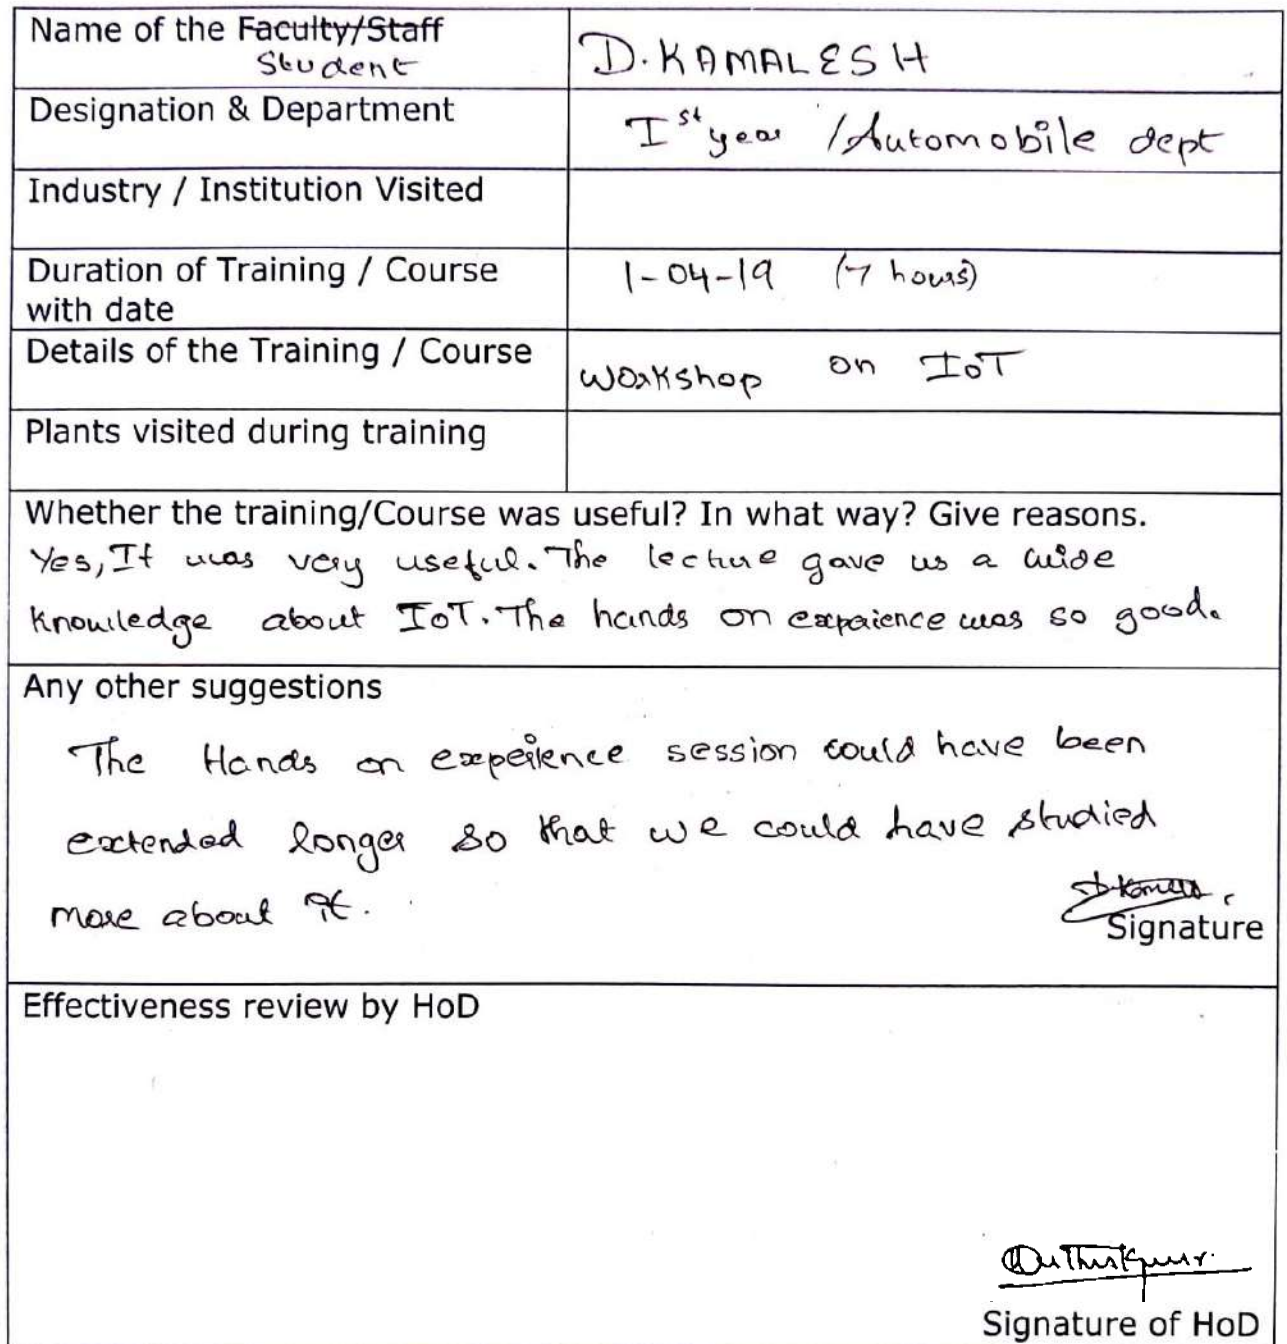 Name of the Faculty/Staff
Student
D. KAMALESH
Designation & Department
Ist year / Automobile dept
Industry / Institution Visited
Duration of Training / Course
with date
1-04-19 (7 hours)
Details of the Training / Course
Workshop on IoT
Plants visited during training
Whether the training/Course was useful? In what way? Give reasons.
Yes, It was very useful. The lecture gave us a wide
knowledge about IoT. The hands on expaience was so good.
Any other suggestions
The Hands on experience session could have been
extended longer so that we could have studied
more about it.
Signature
Effectiveness review by HoD
Signature of HoD